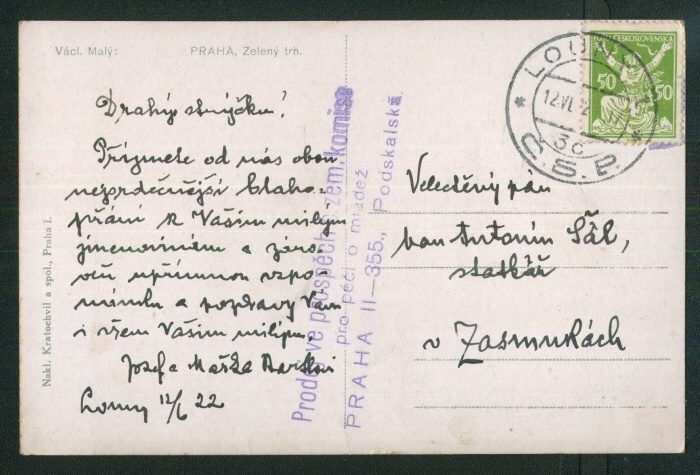 Václ. Malý:
PRAHA, Zelený trh.
Drahý strýčku!
Přijmete od nás obou
nejsrdečnější blaho-
přání k Vašim milým
jmeninám a záro-
veň upřímnou vzpo-
mínku a pozdravy Vám
i všem Vašim milým.
Josef a Máťa
Louny 12/6 22
Nakl. Kratochvil a spol., Praha I.
Prodej ve prospěch zem. komise
pro péči o mládež
PRAHA II—355., Podskalská
POŠTA ČESKOSLOVENSKÁ
50 50
LOUNY
12.VI.2
3c
Č.S.P.
Velectěný pán
pan Antonín Šál,
statkář
v Zásmukách